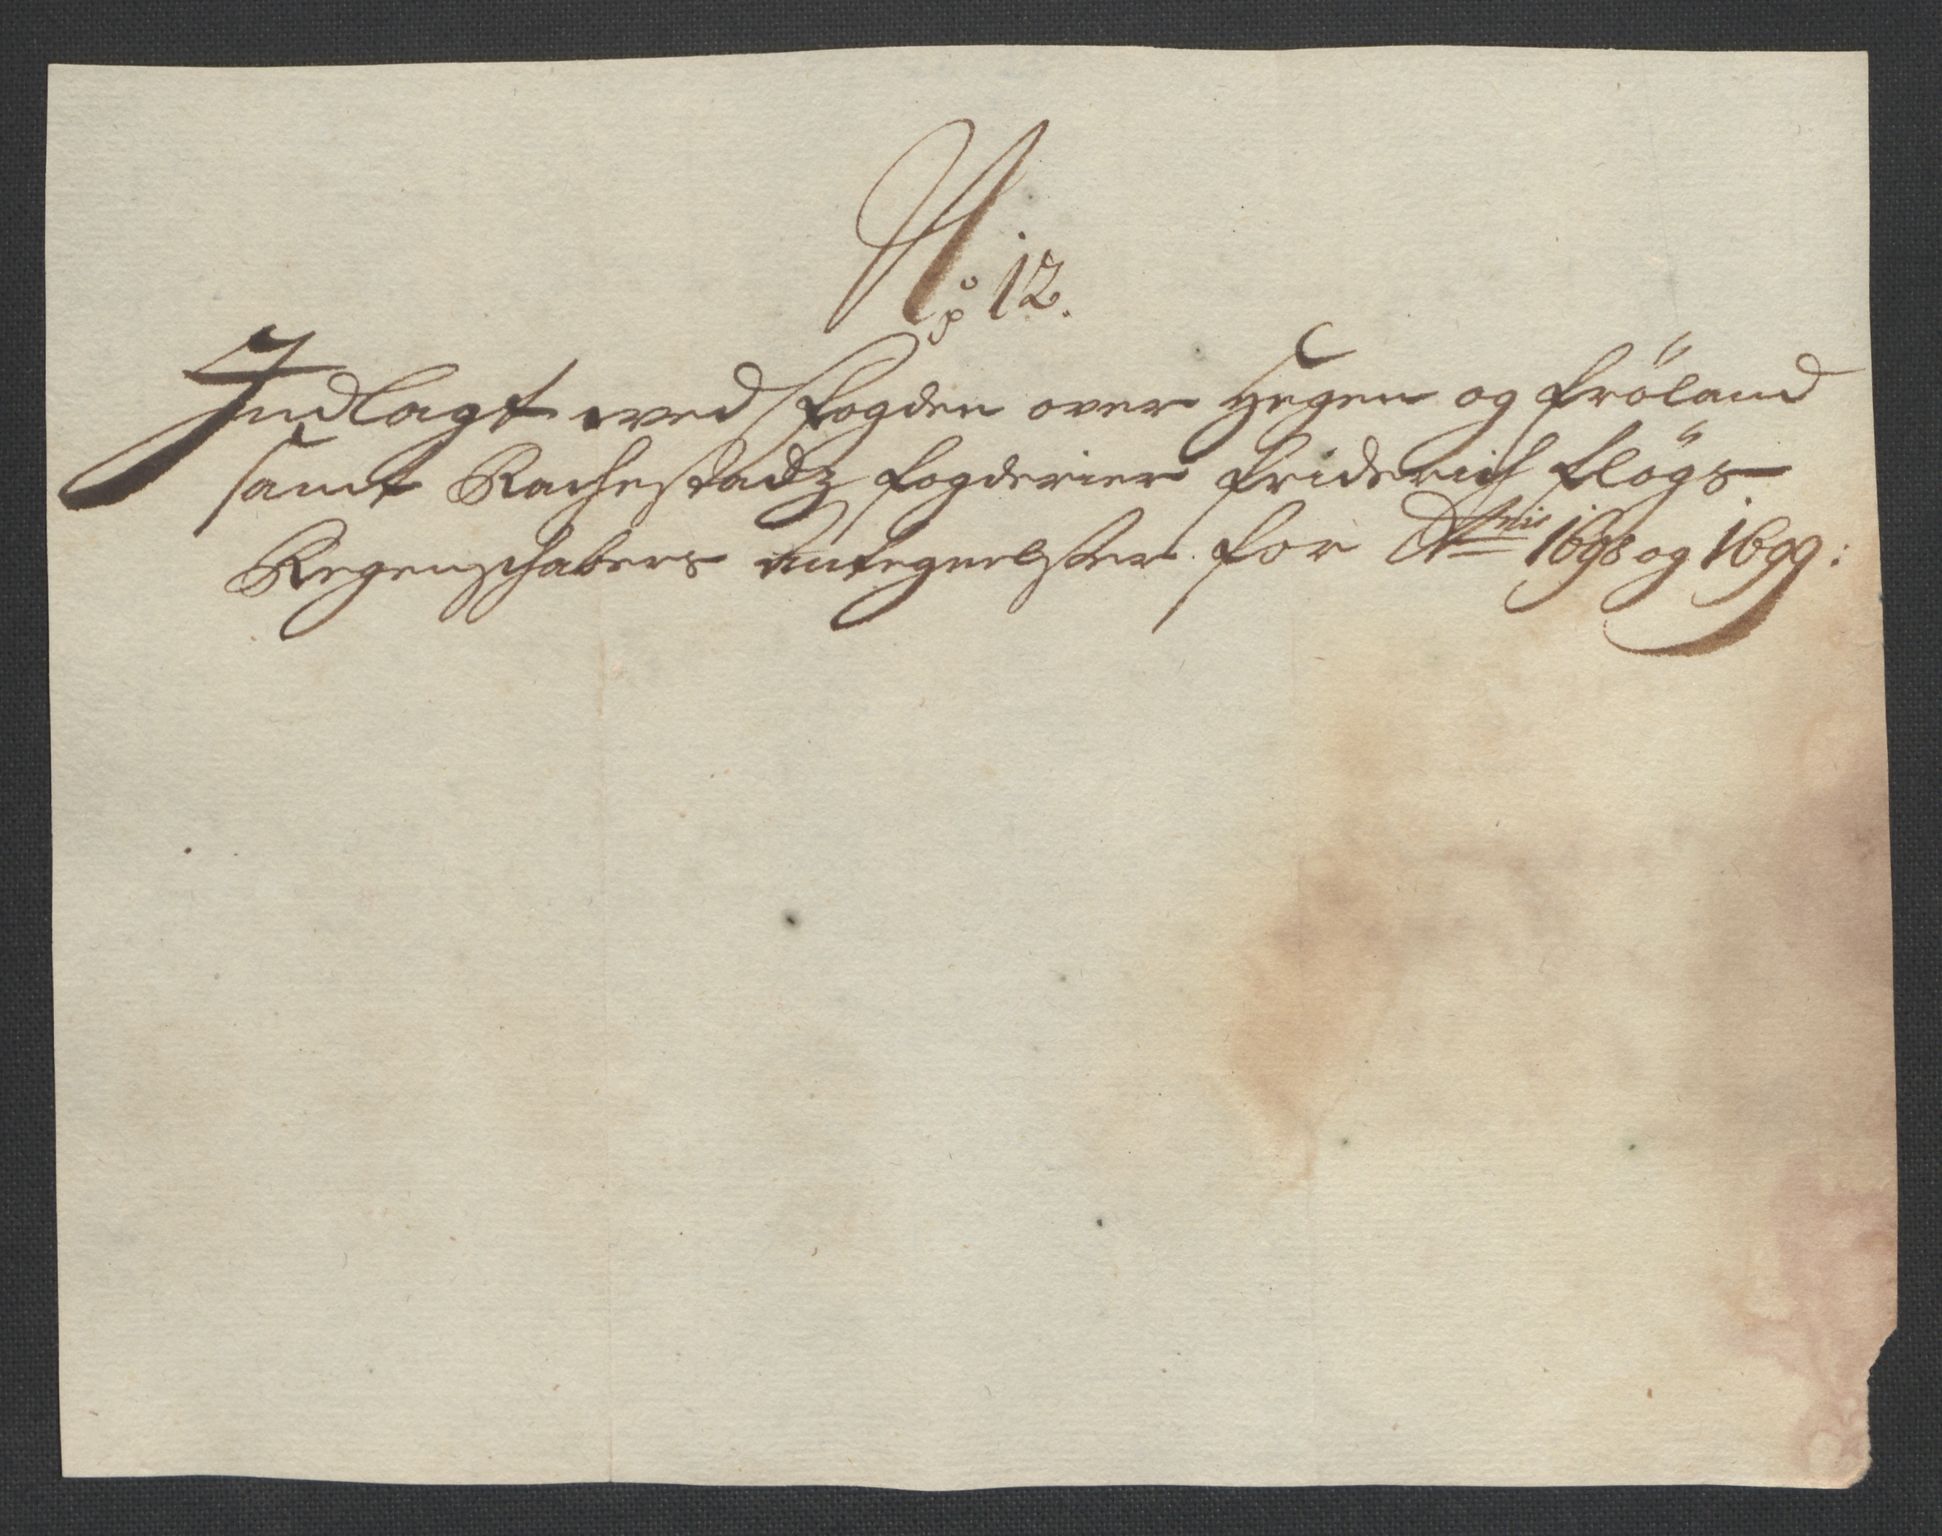 No. 12.
Indlagt wed Fogden over Heggen og Fröland
samt Rachestadz fogderier Friderich Flögs
Regenschabers Antegnelsser for Annis 1698 og 1699: